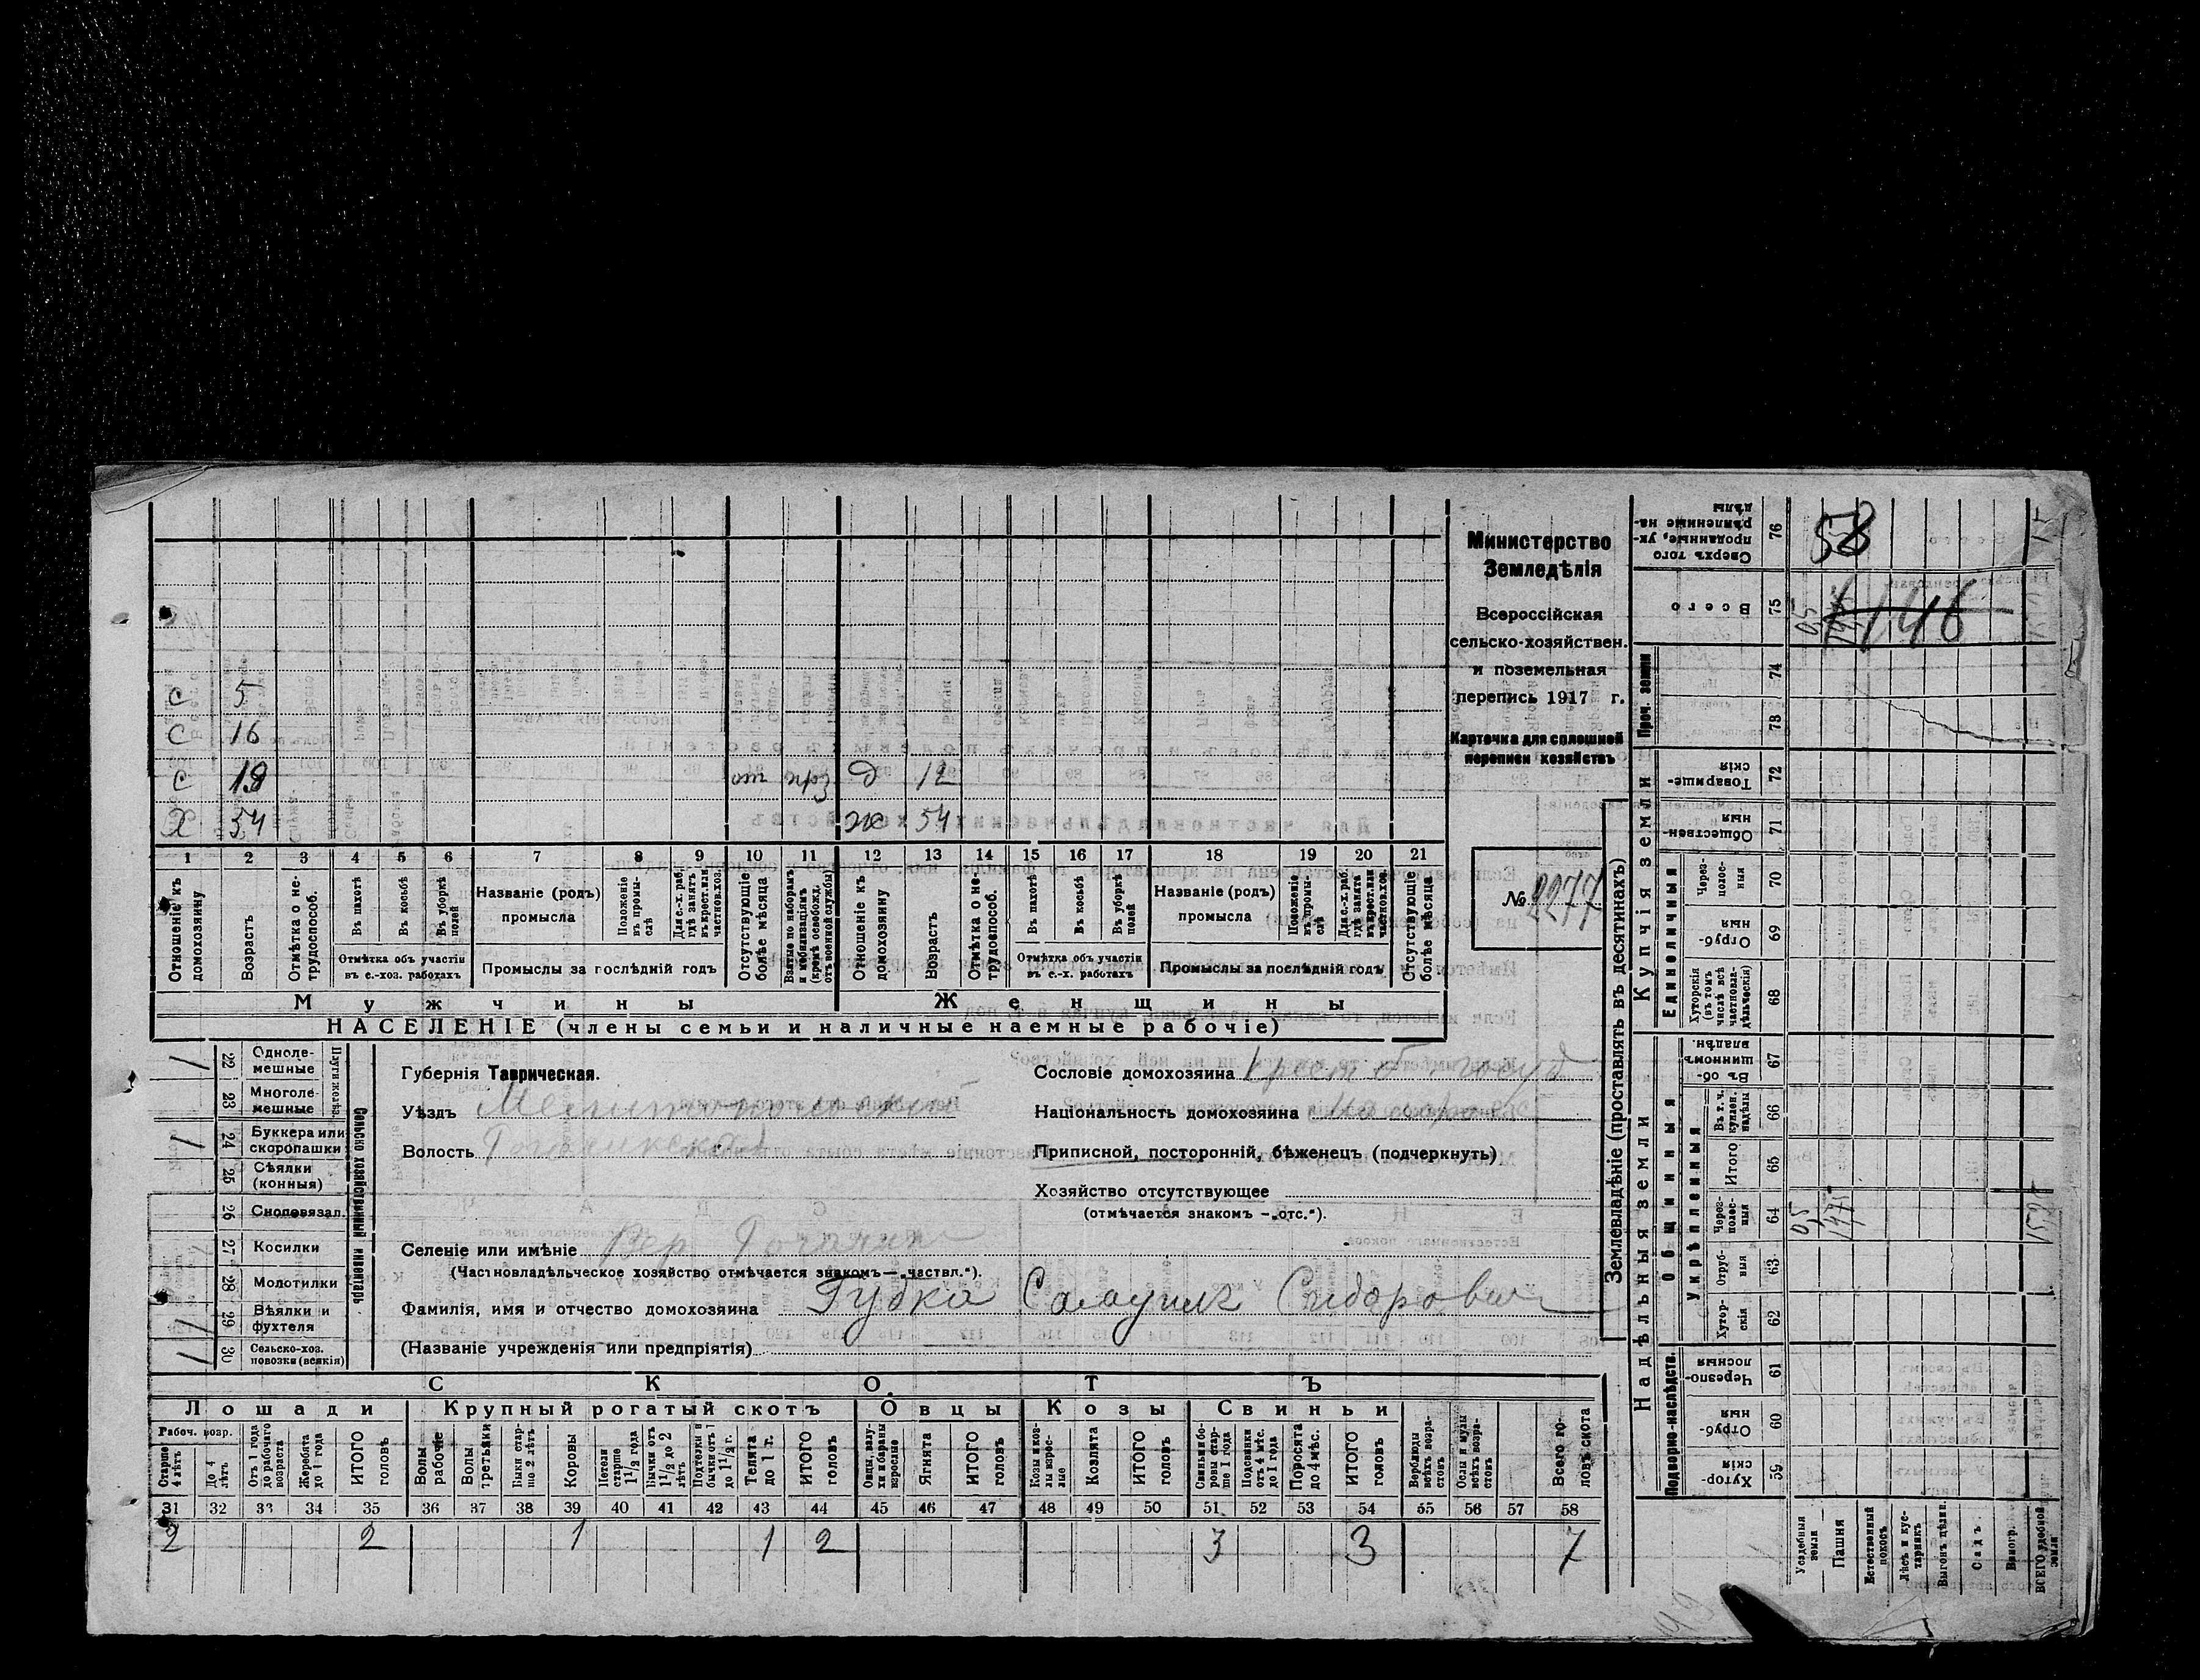 Министерство
Земледѣлія
Всероссійская
сельско-хозяйствен.
и поземельная
перепись 1917 г.
Карточка для сплошной
переписи хозяйствъ
№ 2277
с 5
с 16
с 19 от д 12
Х 54 ж 54
1 2 3 4 5 6 7 8 9 10 11 12 13 14 15 16 17 18 19 20 21
Отношеніе къ домохозяину
Возрастъ
Отмѣтка о не-трудоспособ.
Въ пахотѣ
Въ косьбѣ
Въ уборкѣ полей
Отмѣтка объ участіи
въ с.-хоз. работахъ
Названіе (родъ)
промысла
Положеніе въ промы-слѣ
Для с.-х. раб. гдѣ занятъ въ крест. или частновл. хоз.
Промыслы за послѣдній годъ
Отсутствующіе болѣе мѣсяца
Взятые по наборамъ и мобилизаціямъ (кромѣ освобожд. отъ военной службы)
Отношеніе къ домохозяину
Возрастъ
Отмѣтка о не-трудоспособ.
Въ пахотѣ
Въ косьбѣ
Въ уборкѣ полей
Отмѣтка объ участіи
въ с.-х. работахъ
Названіе (родъ)
промысла
Положеніе въ промы-слѣ
Для с.-х. раб. гдѣ занята въ крест. или частновл. хоз.
Промыслы за послѣдній годъ
Отсутствующіе болѣе мѣсяца
Мужчины Женщины
НАСЕЛЕНІЕ (члены семьи и наличные наемные рабочіе)
Сельско хозяйственный инвентарь
22 Однолемешные 1
23 Многолемешные
24 Буккера или скоропашки 1
25 Сѣялки (конныя)
26 Сноповязал.
27 Косилки
28 Молотилки
29 Вѣялки и фухтеля 1
30 Сельско-хоз. повозки (всякія) 1
Губернія Таврическая.
Уѣздъ Мелитопольскій
Волость Рогачикская
Селеніе или имѣніе Вер Рогачик
(Частновладѣльческое хозяйство отмѣчается знакомъ — „частвл.“).
Фамилія, имя и отчество домохозяина Губка Сидорович
(Названіе учрежденія или предпріятія)
Сословіе домохозяина
Національность домохозяина
Приписной, посторонній, бѣженецъ (подчеркнуть)
Хозяйство отсутствующее
(отмѣчается знакомъ — „отс.“).
СКОТЪ
Лошади Крупный рогатый скотъ Овцы Козы Свиньи
Рабоч. возр.
Старше 4 лѣтъ
До 4 лѣтъ
Отъ 1 года до рабочаго возраста
Жеребята до 1 года
ИТОГО головъ
Волы рабочіе
Волы третьяки
Быки стар-ше 2 лѣтъ
Коровы
Нетели старше 1½ года
Бычки отъ 1½ до 2 лѣтъ
Подтелки и бычки отъ 1 до 1½ г.
Телята до 1 г.
ИТОГО головъ
Овцы, валу-хи и бараны взрослые
Ягнята
ИТОГО головъ
Козы и коз-лы взрос-лые
Козлята
ИТОГО головъ
Свиньи и бо-ровы стар-ше 1 года
Подсвинки отъ 4 мѣс. до 1 года
Поросята до 4 мѣс.
ИТОГО головъ
Верблюды всѣхъ возра-стовъ
Ослы и мулы всѣхъ возра-стовъ
Всего го-ловъ скота
31 32 33 34 35 36 37 38 39 40 41 42 43 44 45 46 47 48 49 50 51 52 53 54 55 56 57 58
2 2 1 1 2 3 3 7
Землевладѣніе (проставлять въ десятинахъ)
Надѣльныя земли Купчія земли Проч. земли
Подворно-наслѣдств.
Общинныя
Укрѣпленныя
Единоличныя
76 Сверхъ того проданные, ук-рѣпленные на-дѣлы 58
75 Всего 0,5 146
74
73
72 Товарище-скія
71 Обществен-ныя
70 Через-полос-ныя
69 Отруб-ныя
68 Хуторскія (въ томъ числѣ всѣ частновла-дѣльческія)
67 Въ об-щинномъ владѣн.
66 Въ т. ч. куплен. надѣлы
65 Итого
64 Через-полос-ныя 0,5
63 Отруб-ныя
62 Хутор-скія
61 Черезпо-лосныя
60 Отруб-ныя
59 Хутор-скія
Усадебныя земли
Пашня
Естественный покосъ
Лѣсъ и кус-тарникъ
Выгонъ, цѣлин.
Садъ
Виногр.
ВСЕГО удобной земли